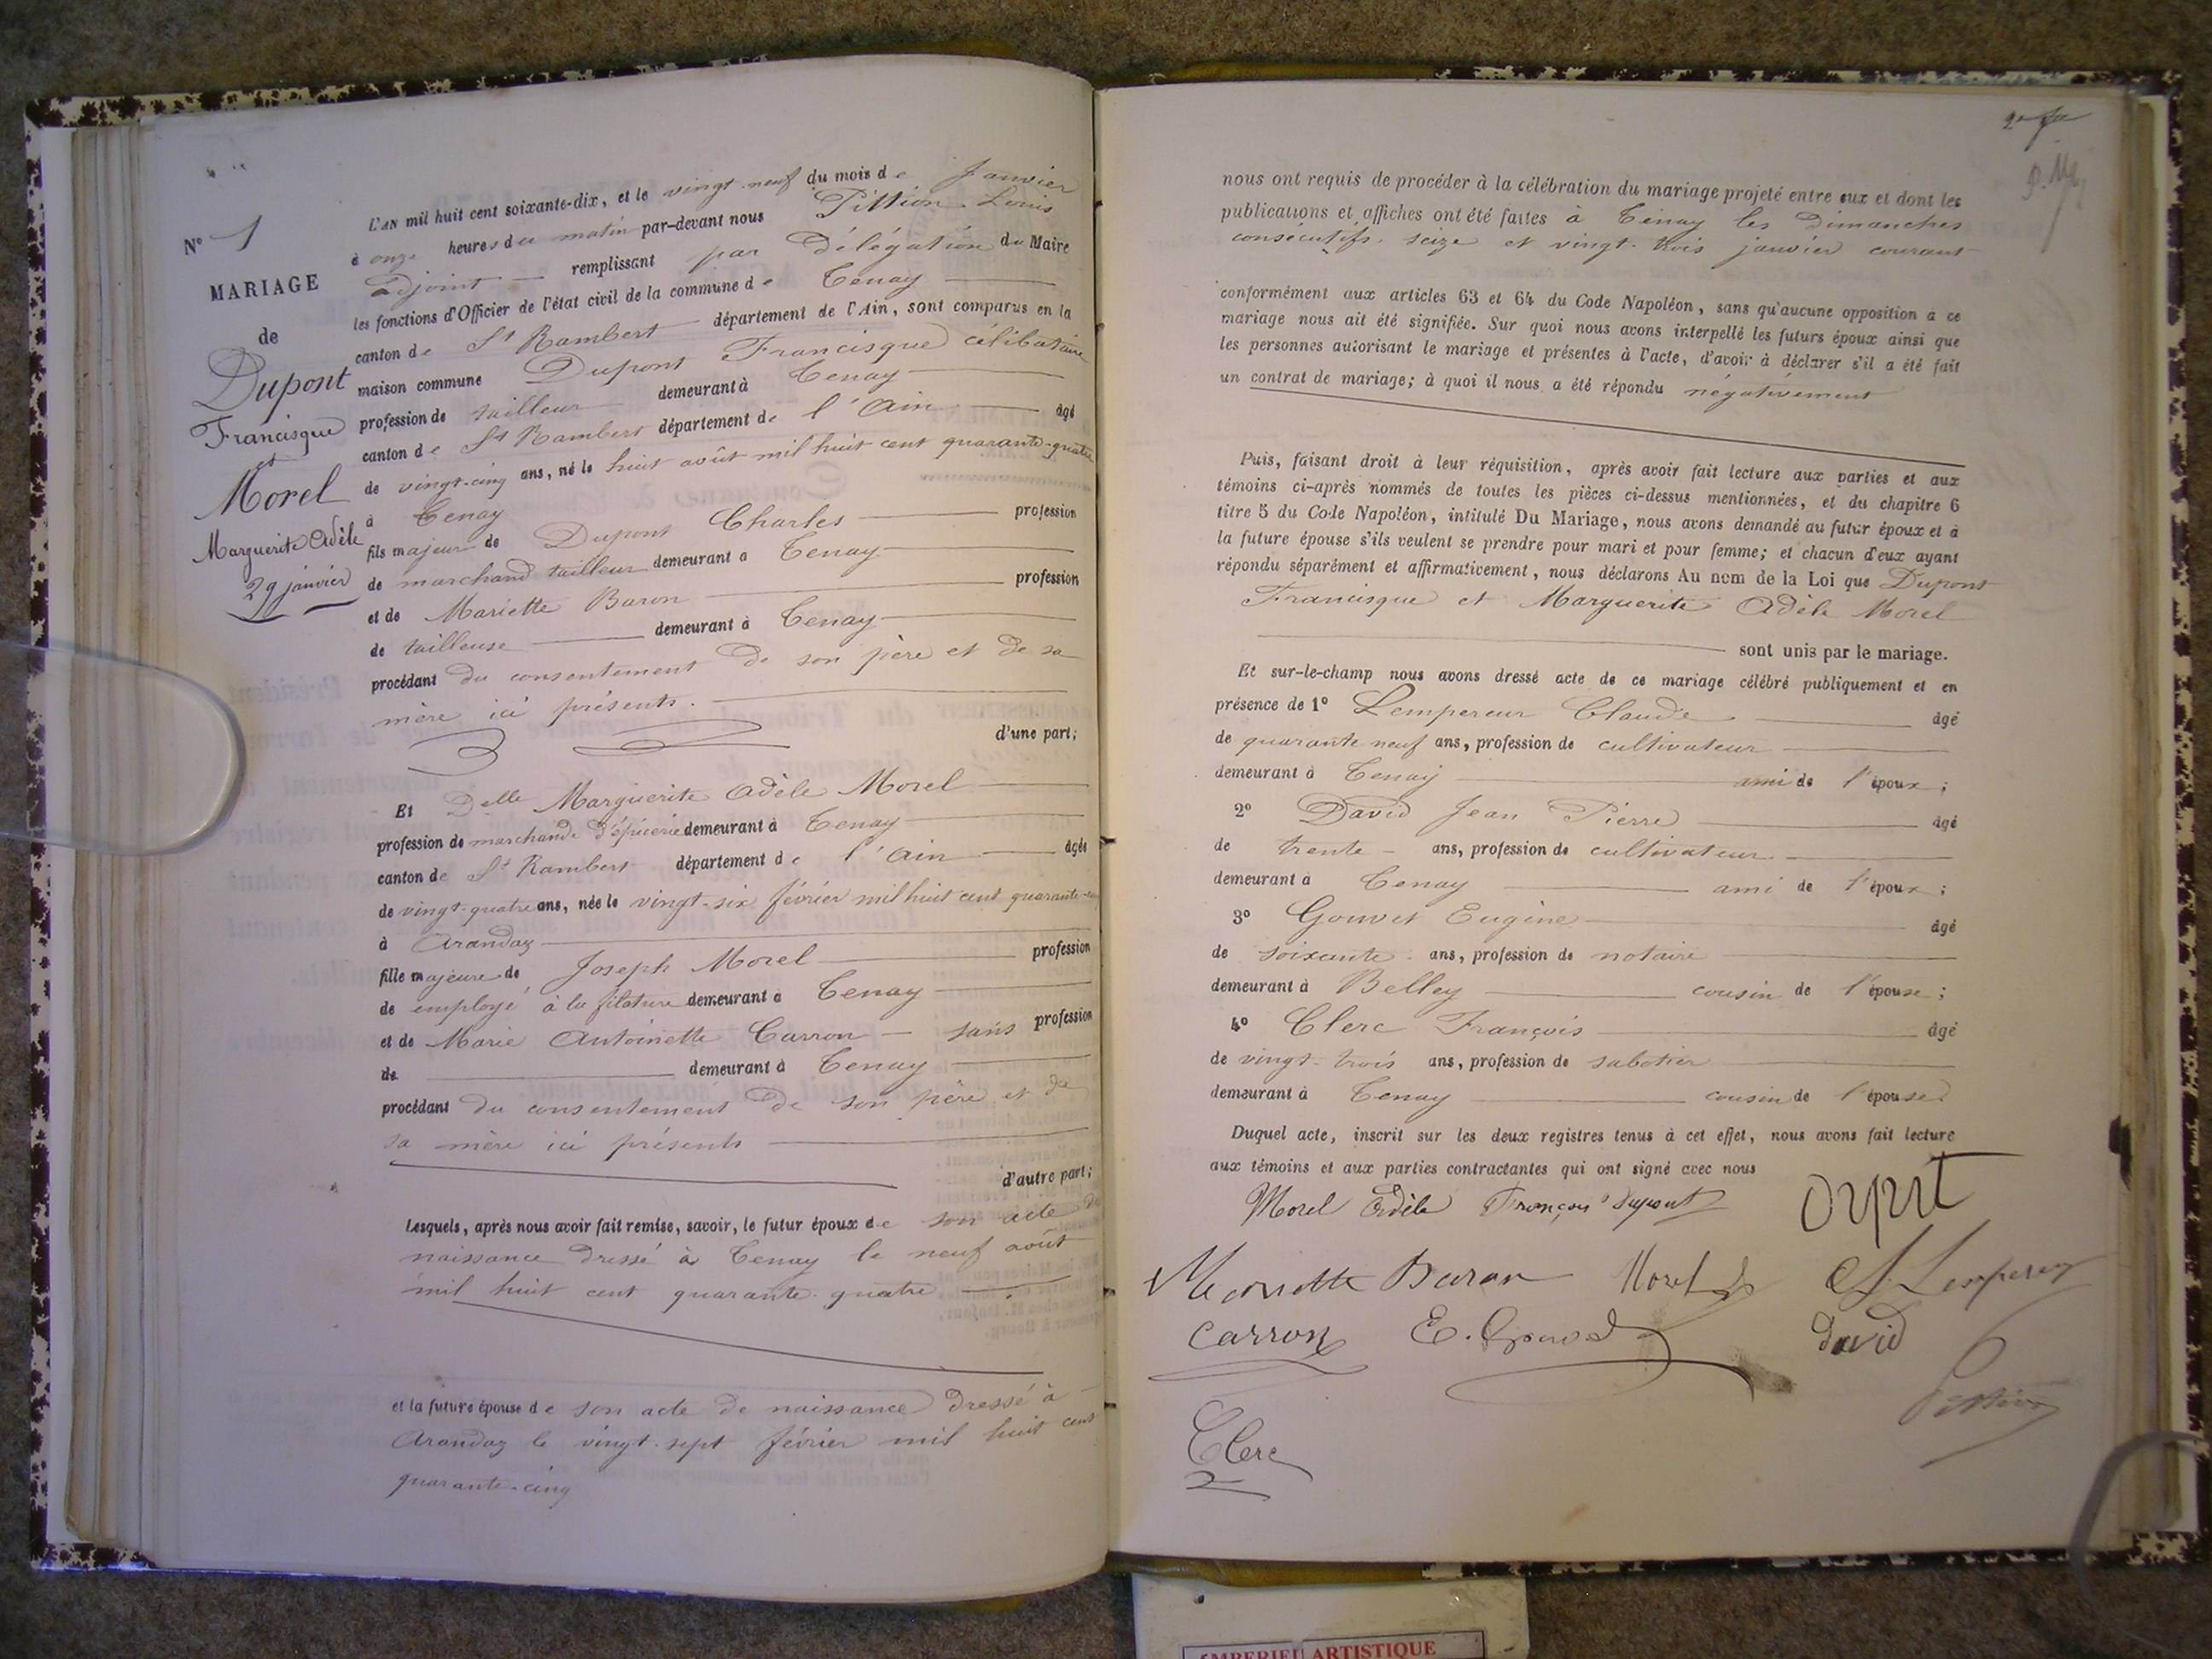 N° 1
MARIAGE
de
Dupont
Francisque
et
Morel
Marguerite Adèle
29 janvier
L'AN mil huit cent soixante-dix, et le vingt-neuf du mois de Janvier
à onze heures du matin par-devant nous Pittion Louis
adjoint remplissant par Délégation du Maire
les fonctions d'Officier de l'état civil de la commune de Tenay
canton de St Rambert département de l'Ain, sont comparus en la
maison commune Dupont Francisque célibataire
profession de tailleur demeurant à Tenay
canton de St Rambert département de l'Ain âgé
de vingt-cinq ans, né le huit août mil huit cent quarante-quatre
à Tenay
fils majeur de Dupont Charles profession
de marchand tailleur demeurant à Tenay
et de Mariette Baron profession
de tailleuse demeurant à Tenay
procédant du consentement de son père et de sa
mère ici présents.
d'une part;
Et Delle Marguerite Adèle Morel
profession de marchande d'épicerie demeurant à Tenay
canton de St Rambert département de l'Ain âgée
de vingt-quatre ans, née le vingt-six février mil huit cent quarante-
à Arandaz
fille majeure de Joseph Morel profession
de employé à la filature demeurant à Tenay
et de Marie Antoinette Carron - sans profession
de demeurant à Tenay
procédant du consentement de son père et de
sa mère ici présents
d'autre part;
Lesquels, après nous avoir fait remise, savoir, le futur époux de son acte de
naissance dressé à Tenay le neuf août
mil huit cent quarante-quatre
et la future épouse de son acte de naissance dressé à
Arandaz le vingt-sept février mil huit cent
quarante-cinq
nous ont requis de procéder à la célébration du mariage projeté entre eux et dont les
publications et affiches ont été faites à Tenay les Dimanches
consécutifs seize et vingt-trois janvier courant
conformément aux articles 63 et 64 du Code Napoléon, sans qu'aucune opposition à ce
mariage nous ait été signifiée. Sur quoi nous avons interpellé les futurs époux ainsi que
les personnes autorisant le mariage et présentes à l'acte, d'avoir à déclarer s'il a été fait
un contrat de mariage; à quoi il nous a été répondu négativement
Puis, faisant droit à leur réquisition, après avoir fait lecture aux parties et aux
témoins ci-après nommés de toutes les pièces ci-dessus mentionnées, et du chapitre 6
titre 5 du Code Napoléon, intitulé Du Mariage, nous avons demandé au futur époux et à
la future épouse s'ils veulent se prendre pour mari et pour femme; et chacun d'eux ayant
répondu séparément et affirmativement, nous déclarons Au nom de la Loi que Dupont
Francisque et Marguerite Adèle Morel
sont unis par le mariage.
Et sur-le-champ nous avons dressé acte de ce mariage célébré publiquement et en
présence de 1° Lempereur Claude âgé
de quarante neuf ans, profession de cultivateur
demeurant à Tenay ami de l'époux;
2° David Jean Pierre âgé
de trente ans, profession de cultivateur
demeurant à Tenay ami de l'époux;
3° Gouvet Eugène âgé
de soixante ans, profession de notaire
demeurant à Belley cousin de l'épouse;
4° Clerc François âgé
de vingt-trois ans, profession de sabotier
demeurant à Tenay cousin de l'épouse
Duquel acte, inscrit sur les deux registres tenus à cet effet, nous avons fait lecture
aux témoins et aux parties contractantes qui ont signé avec nous
Morel Adèle François Dupont
Mariette Baron Morel
Carron David
Pittion
Clerc
ARTISTIQUE